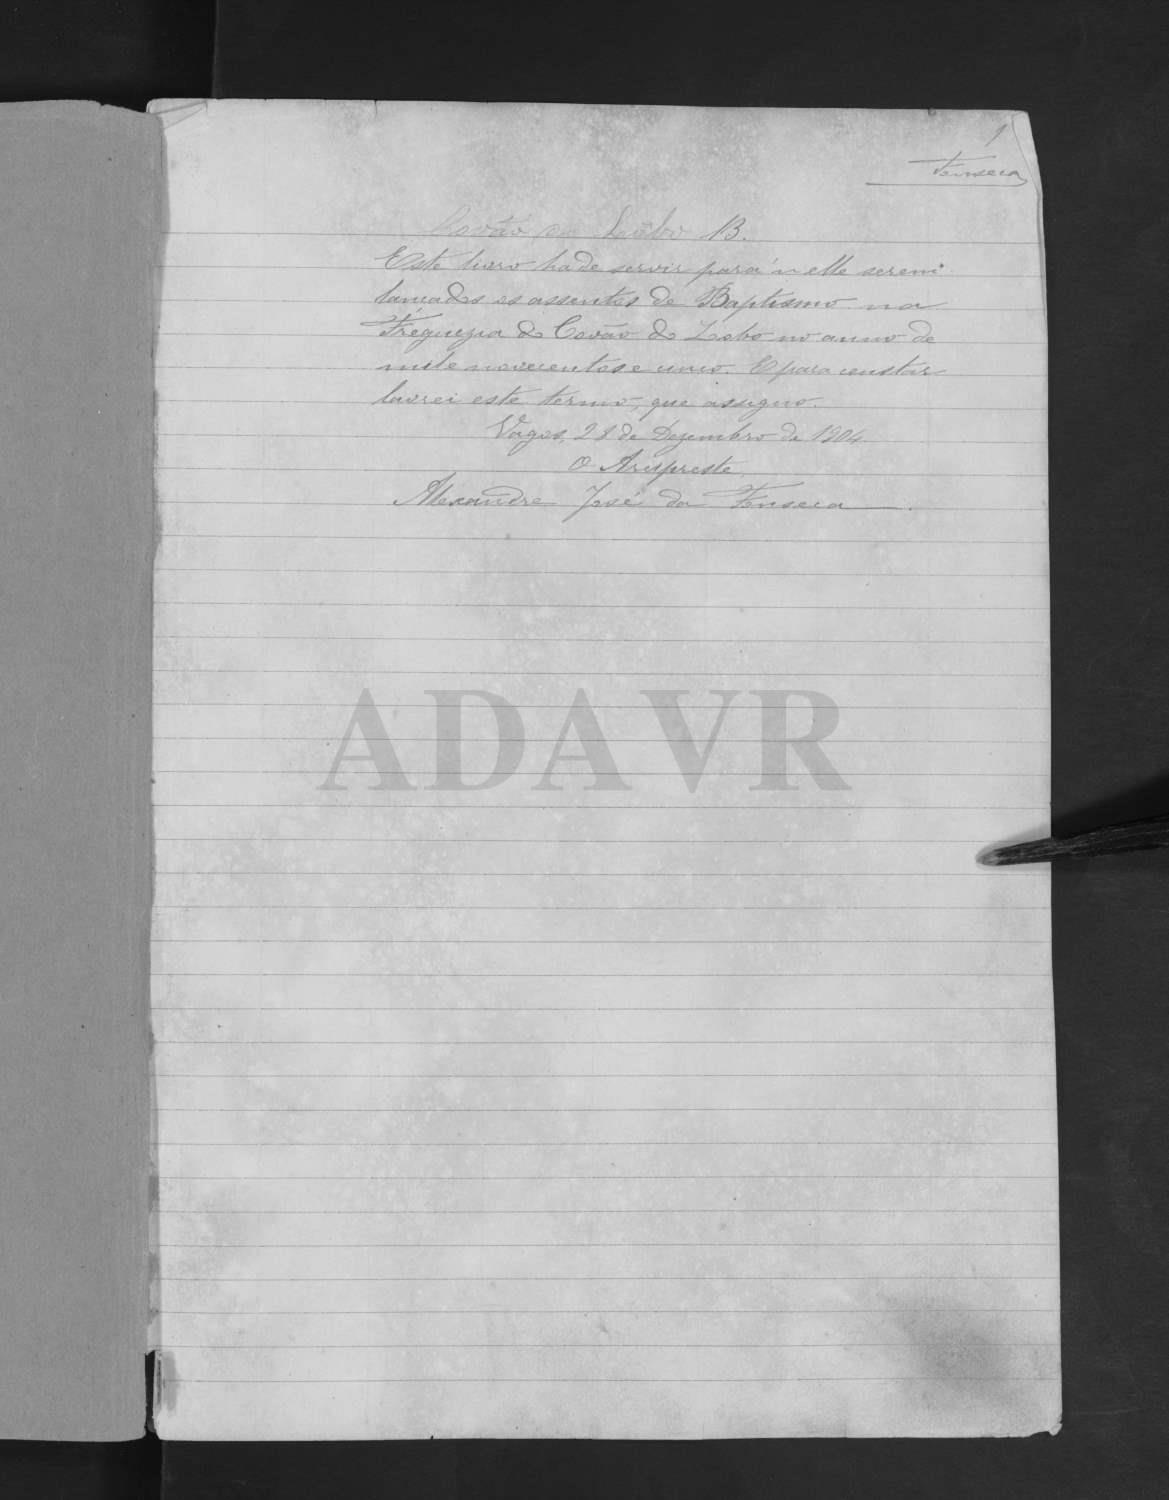 1
Fonseca
Covão do Lobo B.
Este livro ha de servir para n'elle serem
lançados os assentos de Baptismo na
Freguezia de Covão do Lobo no anno de
mil e novecentos e cinco. E para constar
lavrei este termo, que assigno.
Vagos, 28 de Dezembro de 1904.
O Arcipreste,
Alexandre José da Fonseca.
ADAVR